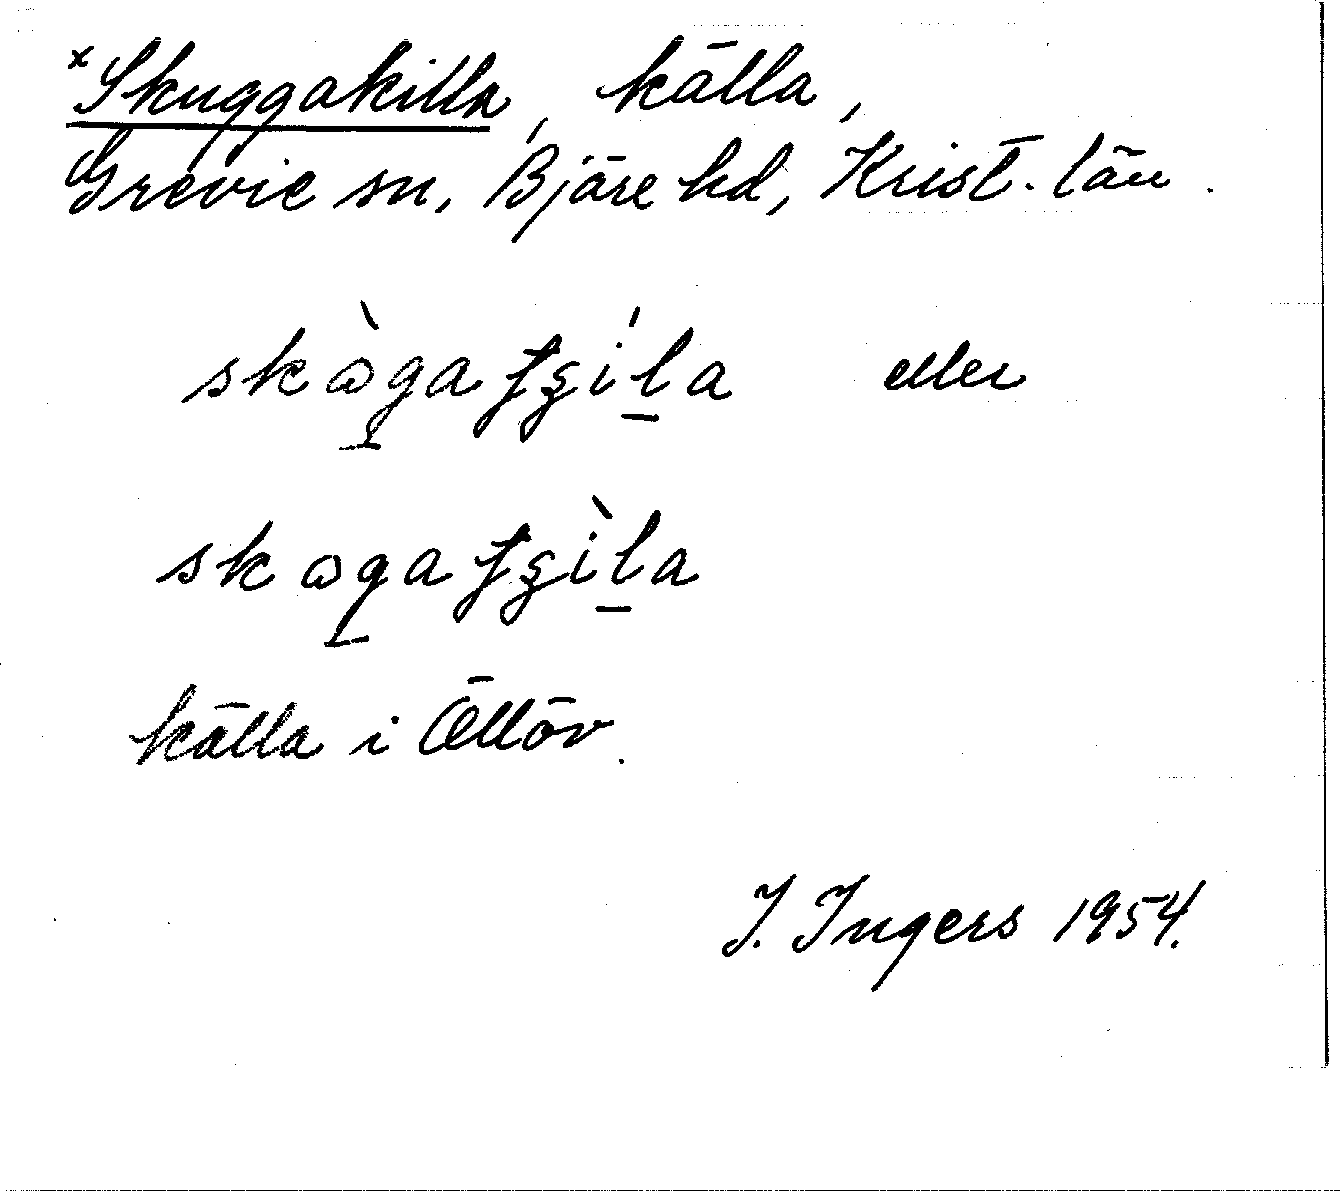 *Skuggakilla, källa,
Grevie sn, Bjäre hd, Krist. län.
skὼga̠ʄʒíl̠a eller
skωga̠ʄʒìl̠a
källa i Öllöv.
I. Ingers 1954.